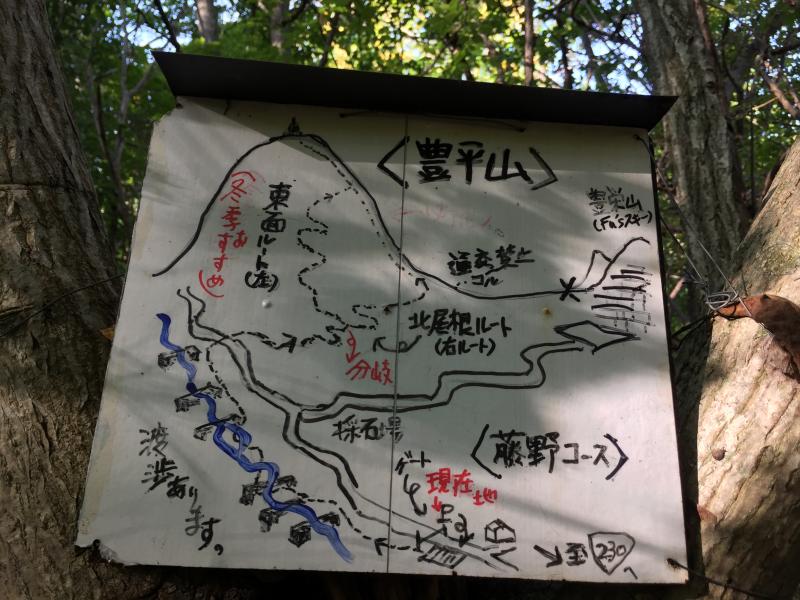 〈豊平山〉
豊栄山
(Fu'sスキー)
東面ルート(左)
(冬季おすすめ)
コル
北尾根ルート
(右ルート)
分岐
採石場
〈藤野コース〉
渡渉あります。
ゲート
現在地
至 230